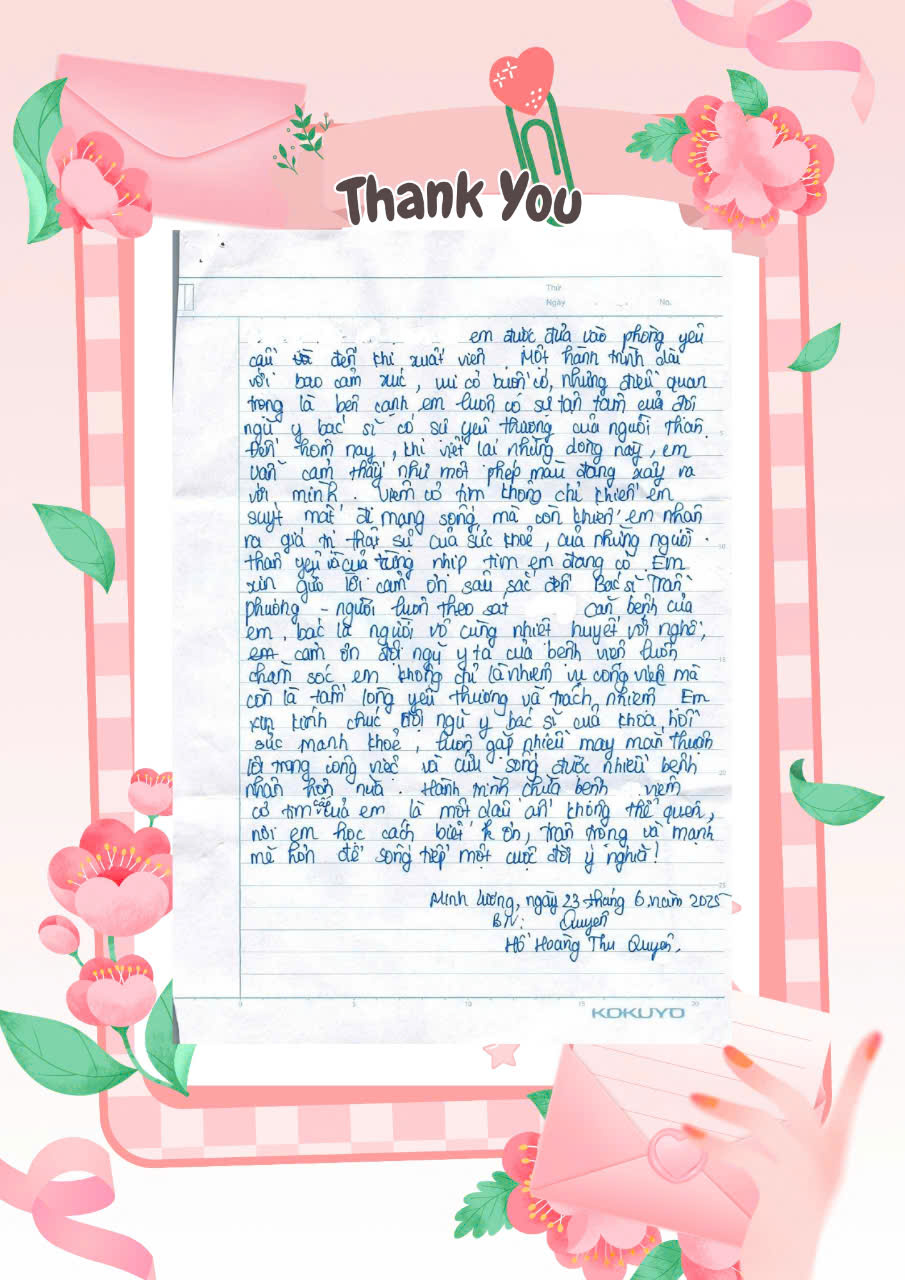 Thank You
Thứ
Ngày
No.
em được đưa vào phòng yêu
cầu đến khi xuất viện Một hành trình dài
với bao cảm xúc, vui có buồn có, nhưng điều quan
trọng là bên cạnh em luôn có sự tận tâm của đội
ngũ y bác sĩ có sự yêu thương của người thân.
Đến hôm nay, khi viết lại những dòng này, em
vẫn cảm thấy như một phép màu đang xảy ra
với mình. Viêm cơ tim không chỉ khiến em
suýt mất đi mạng sống, mà còn khiến em nhận
ra giá trị thật sự của sức khoẻ, của những người
thân yêu và của từng nhịp tim em đang có. Em
xin gửi lời cảm ơn sâu sắc đến Bác sĩ Trần
phương - người luôn theo sát căn bệnh của
em, bác là người vô cùng nhiệt huyết với nghề,
em cảm ơn đội ngũ y tá của bệnh viện luôn
chăm sóc em không chỉ là nhiệm vụ công việc mà
còn là tấm lòng yêu thương và trách nhiệm Em
xin kính chúc đội ngũ y bác sĩ của khoa hồi
sức mạnh khoẻ, luôn gặp nhiều may mắn thuận
lợi trong công việc và cứu sống được nhiều bệnh
nhân hơn nữa. Hành trình chữa bệnh viêm
cơ tim cấp của em là một dấu ấn không thể quên,
nơi em học cách biết ơn, trân trọng và mạnh
mẽ hơn để sống tiếp một cuộc đời ý nghĩa!
Minh Lương, ngày 23 tháng 6 năm 2025
BN: Quyên
Hồ Hoàng Thu Quyên.
5
10
15
20
25
0
5
10
15
20
KOKUYO